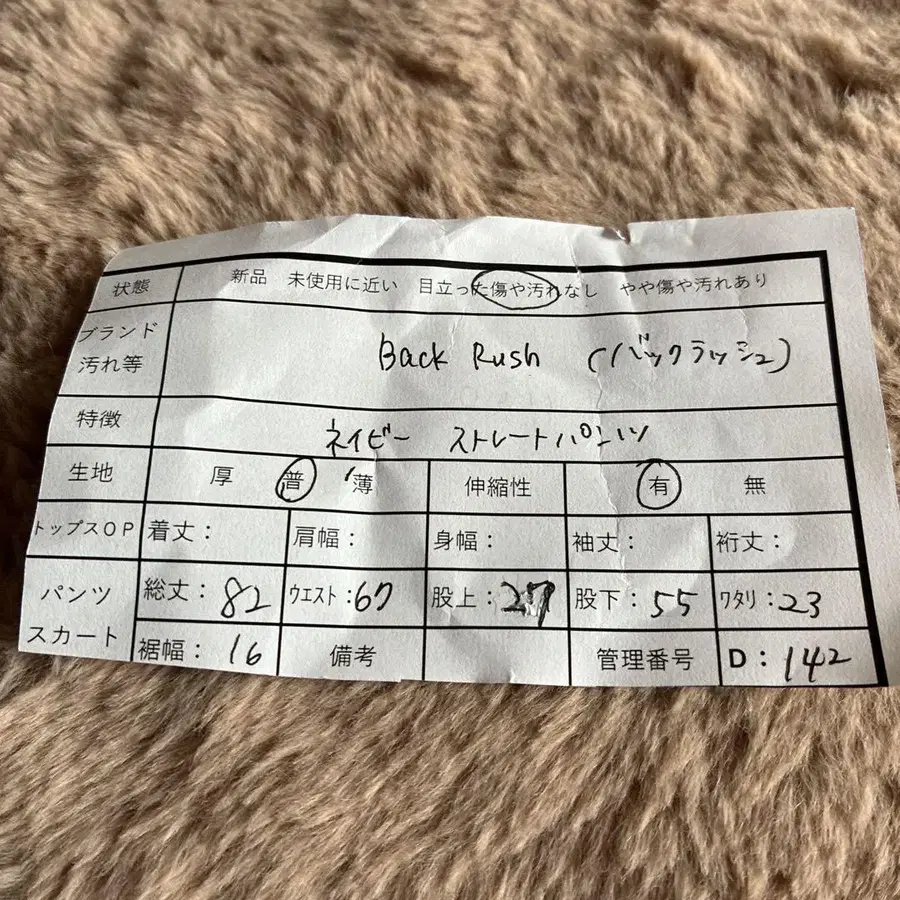 状態 新品 未使用に近い 目立った傷や汚れなし やや傷や汚れあり
ブランド
汚れ等 Back Rush (バックラッシュ)
特徴 ネイビー ストレートパンツ
生地 厚 普 薄 伸縮性 有 無
トップスOP 着丈: 肩幅: 身幅: 袖丈: 裄丈:
パンツ 総丈: 82 ウエスト: 67 股上: 27 股下: 55 ワタリ: 23
スカート 裾幅: 16 備考 管理番号 D: 142